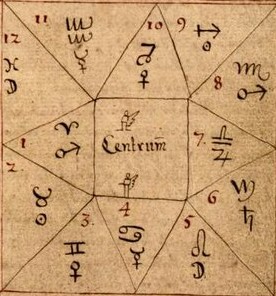 12 ♓ ☽
11 ♒ ☿
10 ♑ ♀
9 ♐ ☉
8 ♏ ♂
1 ♈ ♂
Centrum
7. ♎ ♃
2. ♉ ☉
3. ♊ ♀
4 ♋ ☿
5 ♌ ☽
6 ♍ ♄